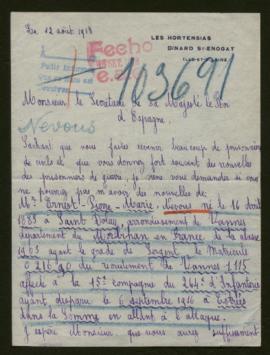 Le 12 août 1918
LES HORTENSIAS
DINARD ST ENOGAT
ILLE-ET-VILAINE
Fecho
103691
Monsieur le Secrétaire de Sa Majesté le Roi
d'Espagne.
Nevous
Sachant que vous faites revenir beaucoup de prisonniers
de civils et que vous donnez fort souvent des nouvelles
des prisonniers de guerre, je viens vous demander si vous
ne pourriez pas m'avoir des nouvelles de:
Mr Ernest-Pierre-Marie-Nevous né le 16 avril
1883 à Saint Dolay, arrondissement de Vannes
département du Morbihan en France de la classe
1903 ayant le grade de Sergent le Matricule
du recrutement de Vannes 1115
affecté à la 15e compagnie du 264e d'Infanterie
ayant disparu le 6 septembre 1916 à
dans la Somme en allant à l'attaque.
J'espère Monsieur que vous aurez suffisamment